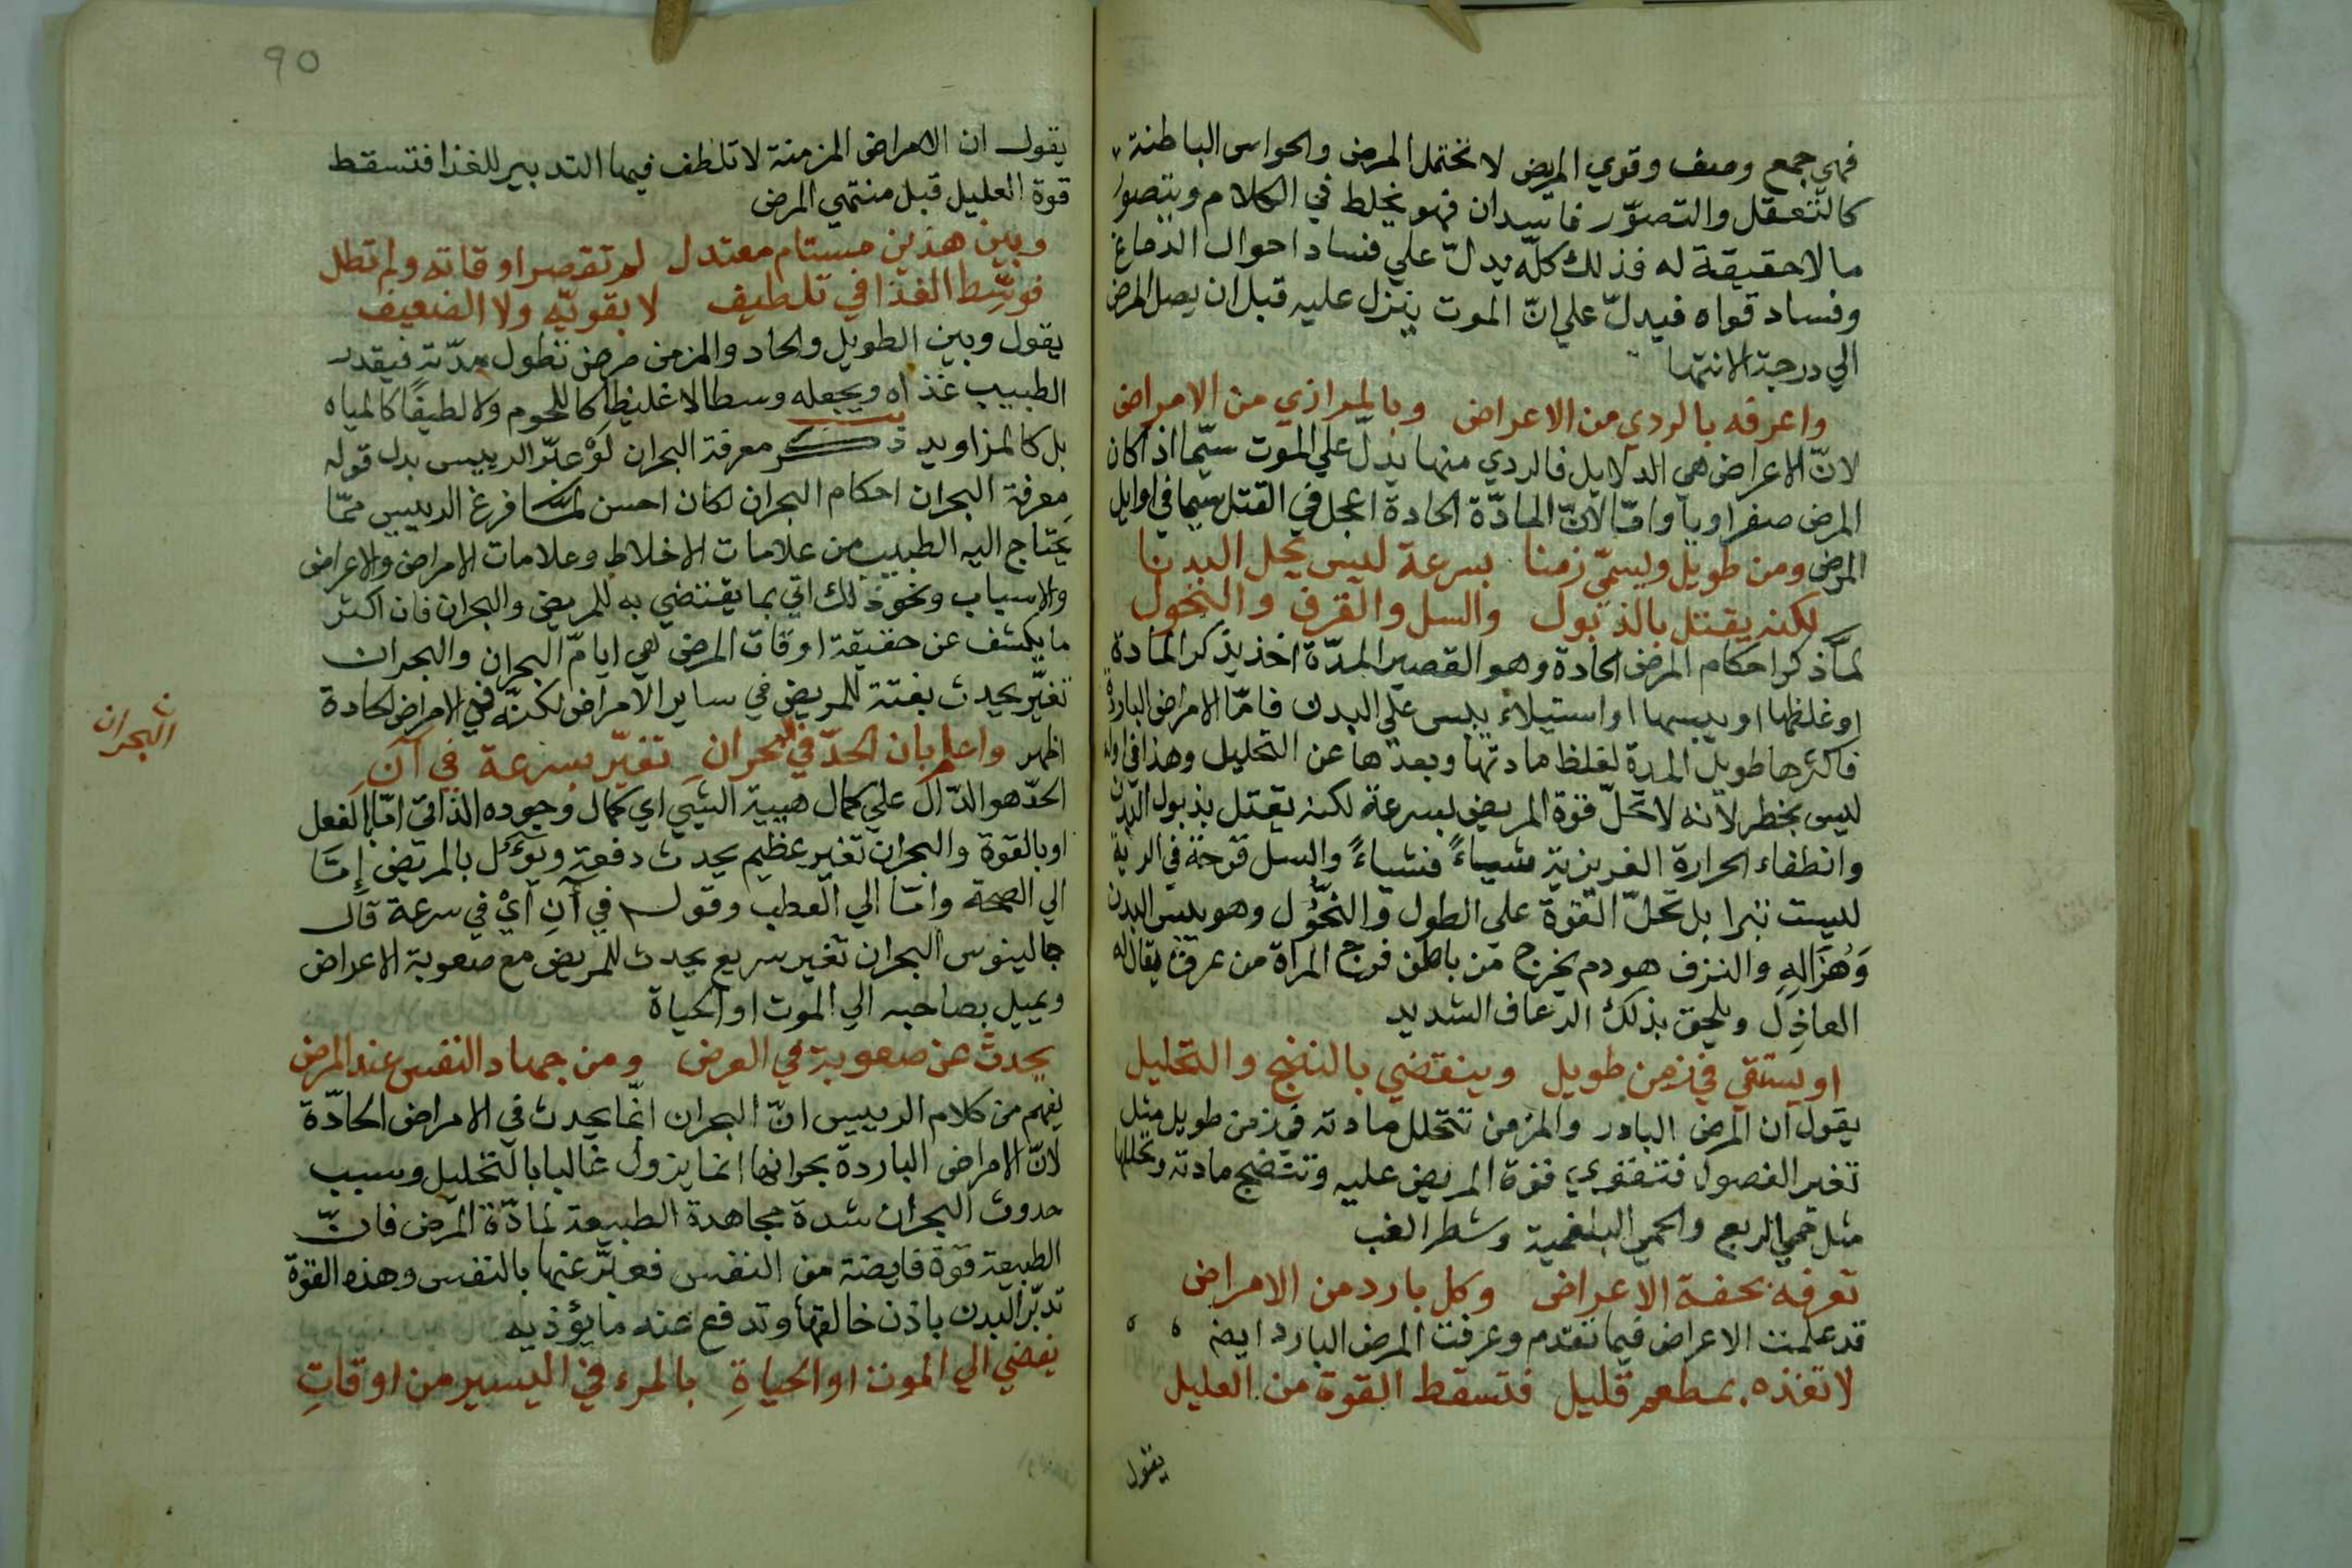 فهي جمع وصف وقوي المريض لا تحتمل المرض والحواس الباطنة
كالتعقل والتصوّر فاسدان فهو يخلط في الكلام ويتصور
ما لا حقيقة له فذلك كلّه يدلّ علي فساد احوال الدماغ
وفساد قواه فيدلّ علي انّ الموت ينزل عليه قبل ان يصل المرض
الي درجة الانتها
واعرفه بالردي من الاعراض وبالموازي من الامراض
لانّ الاعراض هي الدلايل فالردي منها يدلّ علي الموت سيّما اذ اكان
المرض صفراويا وامّا لانّ المادّة الحادة اعجل في القتل سيما في اوايل
المرض ومن طويل ويسمّي زمنا بسرعة ليس يحل البدنا
لكنه يقتل بالذبول والسل والقرف والنحول
لمّا ذكر احكام المرض الحادة وهو القصير المدّة اخذ يذكر المادة
او غلظها او يبسها او استيلاء يبس علي البدن فامّا الامراض الباردة
فاكثرها طويل المدة لغلظ مادتها وبعدها عن التحليل وهذا في اوله
ليس بخطر لانه لا تحلّ قوة المريض بسرعة لكنه يقتل بذبول البدن
وانطفاء الحرارة الغريزية شياءً فشياءً والسل قرحة في الرية
ليست تبرا بل تحلّ القوة علي الطول والنحُّول وهو يبس البدن
وَهُزَالِهِ والنزف هو دم يخرج من باطن فرج المراة من عرق يقال له
العاذل ويلحق بذلك الرعاف الشديد
او يستقي في زمن طويل وينقضي بالنضج والتحليل
يقول ان المرض البادر والمزمن تتحلل مادته في زمن طويل مثل
تغير الفصول فتقوي قوة المريض عليه وتنضج مادته وتحللها
مثل حمي الربع والحمي البلغمية وشطر الغب
تعرفه بخفة الاعراض وكل بارد من الامراض
قد علمت الاعراض فيما تقدم وعرفت المرض البارد ايضه
لا تغذه بمطعم قليل فتسقط القوة من العليل
يقول
90
يقول ان الامراض المزمنة لا تلطف فيها التدبير للغذا فتسقط
قوة العليل قبل منتهي المرض
وبين هذين مستام معتدل لم تقصر اوقاته ولم تطل
فوسِّط الغذا في تلطيف لا بقويّه ولا الضعيف
يقول وبين الطويل والحاد والمزمن مرض تطول مدّته فيقدر
الطبيب غذاه ويجعله وسطا لا غليظا كاللحوم ولا لطيفًا كالمياه
بل كالمزاوير ذكر معرفة البحران لَوْ عبّر الرييس بدل قوله
معرفة البحران احكام البحران لكان احسن لما فرغ الرييس ممّا
يحتاج اليه الطبيب من علامات الاخلاط وعلامات الامراض والاعراض
والاسباب ونحو ذلك اتي بما يقتضي به للمريض والبحران فان اكثر
ما يكشف عن حقيقة اوقات المرض هي ايامّ البحران والبحران
تغيّر يحدث بغتة للمريض في ساير الامراض لكنّه في الامراض الحادة
البحران
اظهر واعلم بان الحدّ في البحران تغيّر بسرعة في آنِ
الحدّ هو الدّال علي كمال هيية الشيي اي كمال وجوده الذاتي امّا بالفعل
او بالقوة والبحران تغير عظيم يحدث دفعة ويؤكل بالمريض إمّا
الي الصحة وامّا الي العطب وقوله في آنِ أيْ في سرعة قال
جالينوس البحران تغير سريع يحدث للمريض مع صعوبة الاعراض
ويميل بصاحبه الي الموت او الحياة
يحدث عن صعوبة في العرض ومن جهاد النفس عند المرض
يفهم من كلام الرييس انّ البحران انّما يحدث في الامراض الحادّة
لانّ الامراض الباردة بحرانها انما يزول غالبا بالتحليل وسبب
حدوث البحران شدة مجاهدة الطبيعة لمادّة المرض فانّ
الطبيعة قوّة فايضة من النفس فعبّر عنها بالنفس وهذه القوة
تدبّر البدن باذن خالقها وتدفع عنه ما يؤذيه
يفضي الي الموت او الحياةِ بالمرء في اليسير من اوقاتِ